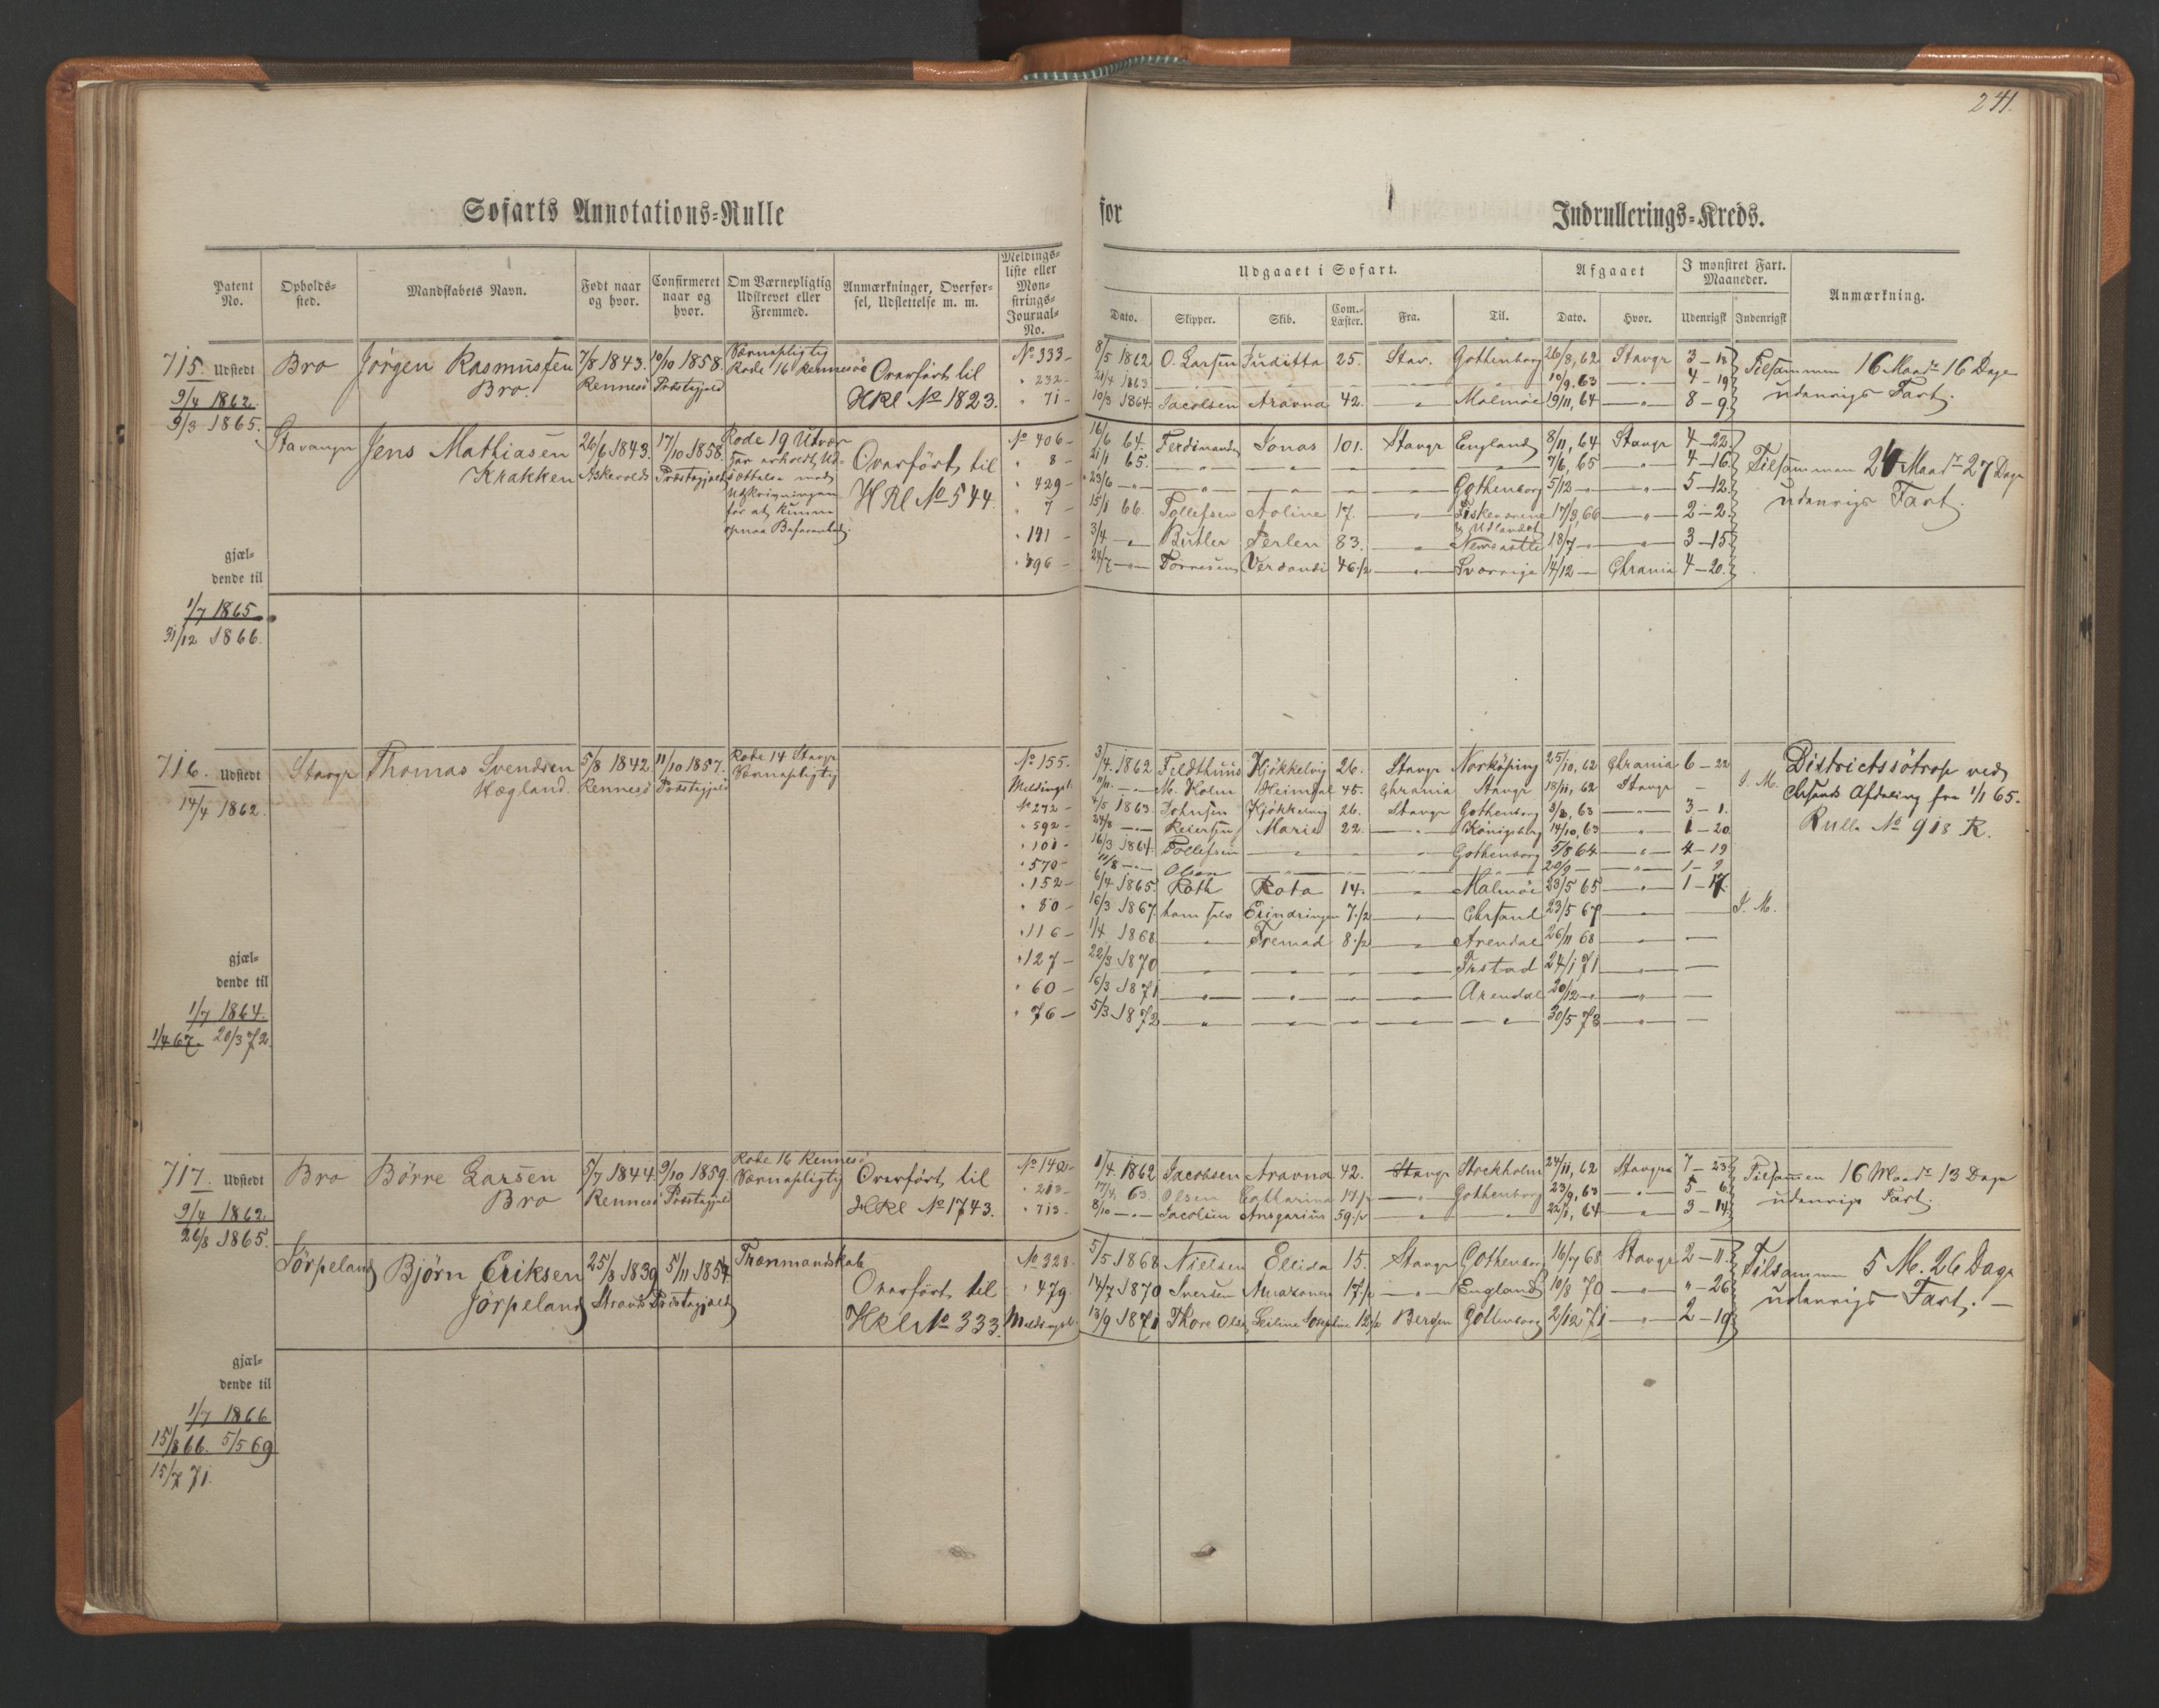 241.
Søfarts Annotations-Rulle
for
Indrullerings-Kreds.
Patent No.
Opholds-sted.
Mandskabets Navn.
Født naar og hvor.
Confirmeret naar og hvor.
Om Værnepligtig Udskrevet eller Fremmed.
Anmærkninger, Overførsel, Udslettelse m. m.
Meldings-liste eller Mønstrings-Journal-No.
Udgaaet i Søfart.
Dato.
Skipper.
Skib.
Com.-Læster.
Fra.
Til.
Afgaaet
Dato.
Hvor.
I mønstret Fart. Maaneder.
Udenrigsk
Indenrigsk
Anmærkning.
715. Udstedt 9/4 1862. 9/3 1865.
Bro Jörgen Rasmussen Bro. 7/8 1843. Rennesö 10/10 1858. Præstegjeld Værnepligtig Rode 16 Rennesö Overfört til HRl No 1823.
No 333 - 8/5 1862 O. Larsen Juditta 25. Stav. Gothenborg 26/8, 62 Stavgr 3 - 18
" 232 - 21/4 1863 — " — 10/9. 63 — " — 4 - 19
" 71 - 10/3 1864. Jacobsen Aravna 42. — " — Malmöe 19/11, 64 — " — 8 - 9
Tilsammen 16 Maadr 16 Dage
udenrigs Fart.
Stavanger Jens Mathiasen Krakken 26/6 1843. Askevold 17/10 1858. Præstegjeld
Rode 19
Overfört til HRl No 544.
No 406 - 16/6 64. Ferdinandsen Jonas 101. Stavgr England 8/11, 64 Stavgr 4 - 22
" 8 - 21/1 65. — " — 7/6, 65 — " — 4 - 16
" 429 - 23/6 — " — Gothenborg 5/12 — " — 5 - 12
" 7 - 15/1 66. Tollefsen Aoline 17. — " — 17/3, 66 — " — 2 - 2
" 141 - 3/4 — Butler Perlen 83. — " — Newcastle 18/7 — " — 3 - 15
" 396 - 24/7 — Verdandi 46 1/2 — " — Sverrige 14/12 — Chrania 4 - 20.
Tilsammen 24 Maadr 27 Dage
udenrigs Fart.
gjæl-
dende til
1/7 1865
31/12 1866.
716. Udstedt 14/4 1862.
Stavgr Thomas Svendsen Hægland. 5/8 1842 Rennesö 11/10 1857. Præstegjeld Rode 14 Stavgr Værnepligtig
No 155. 3/4. 1862 Feldthuus Kjökkelvig 26. Stavgr Norköping 25/10, 62 Chrania 6 - 22
Meldingsl. M. Holm Heimdal 45. Chrania Stavgr 18/11, 62 Stavgr — I. M.
No 272 - 4/5 1863 Johnsen Kjökkelvig 26. Stavgr Gothenborg 3/8, 63 — " — 3 - 1.
" 592 - 24/8 — Reiersen Marie 22. — " — Königsberg 14/10, 63 — " — 1 - 20
" 101 - 16/3 1864. Tollefsen — " — Gothenborg 5/8 64 — " — 4 - 19
" 570 - 11/8 — Olsen — " — 20/9 — " — 1 - 9
" 152 - 6/4 1865. Roth Rota 14. — " — Malmöe 23/5 65 — " — 1 - 17.
" 80 - 16/3 1867. ham selv Erindringen 7 1/2 — " — Chrsand 23/5 67 — " — I. M.
" 116 - 1/4 1868 — " — Fremad 8 1/2 — " — Arendal 26/11 68 — " —
" 127 - 22/3 1870 — " — 24/1 71 — " —
" 60 - 16/3 1871 — " — Arendal 20/12 — " —
" 76 - 5/3 1872 — " — 30/5 73 — " —
Districtssötrop ved
Chrsands Afdeling fra 1/1 65.
Rulle No 918 R.
gjæl-
dende til
1/7 1864.
1/4 67. 20/3 72.
717. Udstedt 9/4 1862. 26/8 1865.
Bro Börre Larsen Bro 5/7 1844. Rennesö 9/10 1859. Præstegjeld Rode 16 Rennesö Værnepligtig Overfört til HRl No 1743.
No 142 - 1/4. 1862 Jacobsen Aravna 42. Stavgr Stockholm 24/11, 62 Stavgr 7 - 23
" 213 - 17/4. 63. Olsen Catharina 17 1/2 — " — Gothenborg 23/9, 63 — " — 5 - 6
" 713 - 8/10 — Jacobsen Ansgarius 59 1/2 — " — 22/1, 64 — " — 3 - 14
Tilsammen 16 Maadr 13 Dage
udenrigs Fart.
Jörpeland Björn Eriksen Jörpeland 25/8 1839 Strands 5/11 1854. Præstegjeld Trænmandskab Overfört til HRl No 333.
No 328 5/5 1868 Nielsen Ellida 15. Stavgr Gothenborg 16/7 68 Stavgr 2 - 11
" 479 14/7 1870 Iversen Amazonen 17 1/2 — " — England 10/8 70 — " — " - 26
Meldingsl. 13/9 1871 Thore Olsen 12 1/2 Bergen Gottenborg 2/12 71 — " — 2 - 19
Tilsammen 5 M. 26 Dage
udenrigs Fart. —
gjæl-
dende til
1/7 1866
15/8 66. 5/5 69
15/7 71.